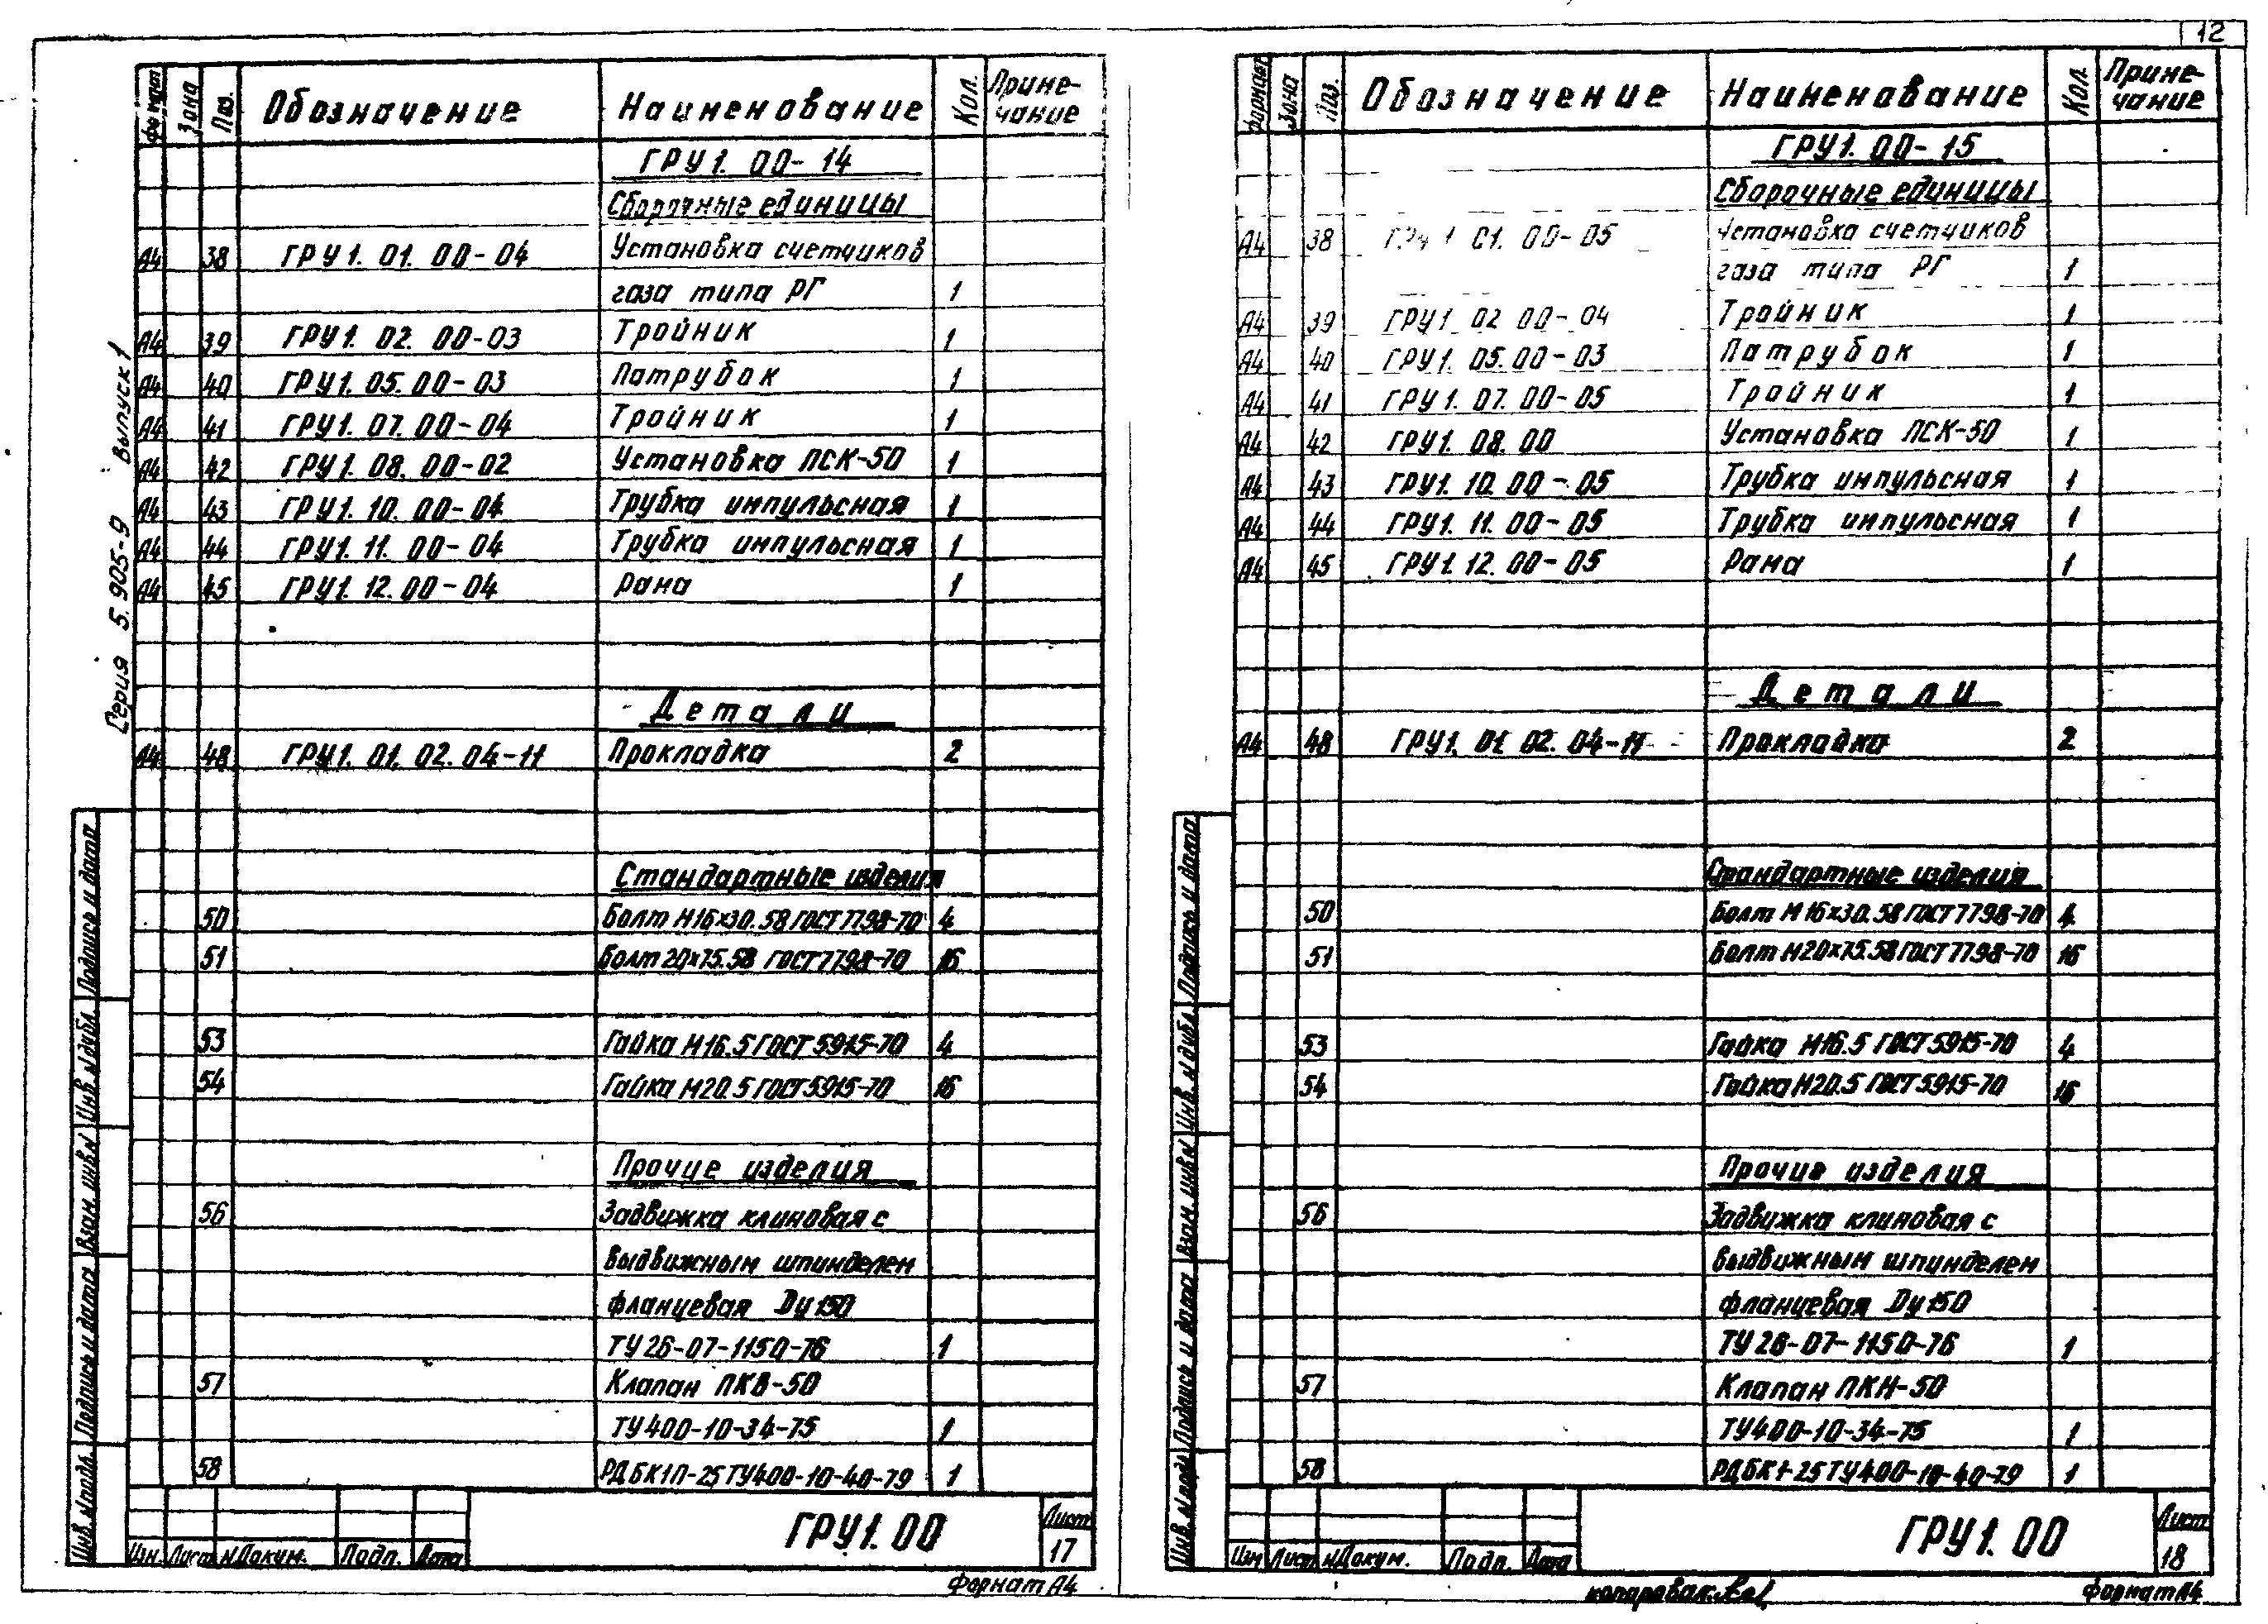 12
Серия 5.905-9 Выпуск 1
Формат Зона Поз. Обозначение Наименование Кол. Приме-
чание
ГРУ1. 00-14
Сборочные единицы
А4 38 ГРУ1. 01. 00-04 Установка счетчиков
газа типа РГ 1
А4 39 ГРУ1. 02. 00-03 Тройник 1
А4 40 ГРУ1. 05. 00-03 Патрубок 1
А4 41 ГРУ1. 07. 00-04 Тройник 1
А4 42 ГРУ1. 08. 00-02 Установка ПСК-50 1
А4 43 ГРУ1. 10. 00-04 Трубка импульсная 1
А4 44 ГРУ1. 11. 00-04 Трубка импульсная 1
А4 45 ГРУ1. 12. 00-04 Рама 1
Детали
А4 48 ГРУ1. 01. 02. 04-11 Прокладка 2
Стандартные изделия
50 Болт М16×30.58 ГОСТ 7798-70 4
51 Болт 20×75.58 ГОСТ 7798-70 16
53 Гайка М16.5 ГОСТ 5915-70 4
54 Гайка М20.5 ГОСТ 5915-70 16
Прочие изделия
56 Задвижка клиновая с
выдвижным шпинделем
фланцевая Dу 150
ТУ 26-07-1150-76 1
57 Клапан ПКВ-50
ТУ 400-10-34-75 1
58 РДБК1П-25 ТУ400-10-40-79 1
Инв. № подл. Подпись и дата Взам. инв № Инв. № дубл. Подпись и дата
Изм Лист № Докум. Подп. Дата
ГРУ1. 00
Лист
17
Формат А4
Формат Зона Поз. Обозначение Наименование Кол. Приме-
чание
ГРУ1. 00-15
Сборочные единицы
А4 38 ГРУ1. 01. 00-05 Установка счетчиков
газа типа РГ 1
А4 39 ГРУ1. 02 00-04 Тройник 1
А4 40 ГРУ1. 05. 00-03 Патрубок 1
А4 41 ГРУ1. 07. 00-05 Тройник 1
А4 42 ГРУ1. 08. 00 Установка ПСК-50 1
А4 43 ГРУ1. 10. 00-05 Трубка импульсная 1
А4 44 ГРУ1. 11. 00-05 Трубка импульсная 1
А4 45 ГРУ1. 12. 00-05 Рама 1
Детали
А4 48 ГРУ1. 01 02. 04-11 Прокладка 2
Стандартные изделия
50 Болт М16×30.58 ГОСТ 7798-70 4
51 Болт М20×75.58 ГОСТ 7798-70 16
53 Гайка М16.5 ГОСТ 5915-70 4
54 Гайка М20.5 ГОСТ 5915-70 16
Прочие изделия
56 Задвижка клиновая с
выдвижным шпинделем
фланцевая Dу 150
ТУ 26-07-1150-76 1
57 Клапан ПКН-50
ТУ400-10-34-75 1
58 РДБК1-25 ТУ400-10-40-79 1
Инв. № подл Подпись и дата Взам. инв № Инв. № дубл. Подпись и дата
Изм Лист № Докум. Подп. Дата
ГРУ1. 00
Лист
18
Формат А4